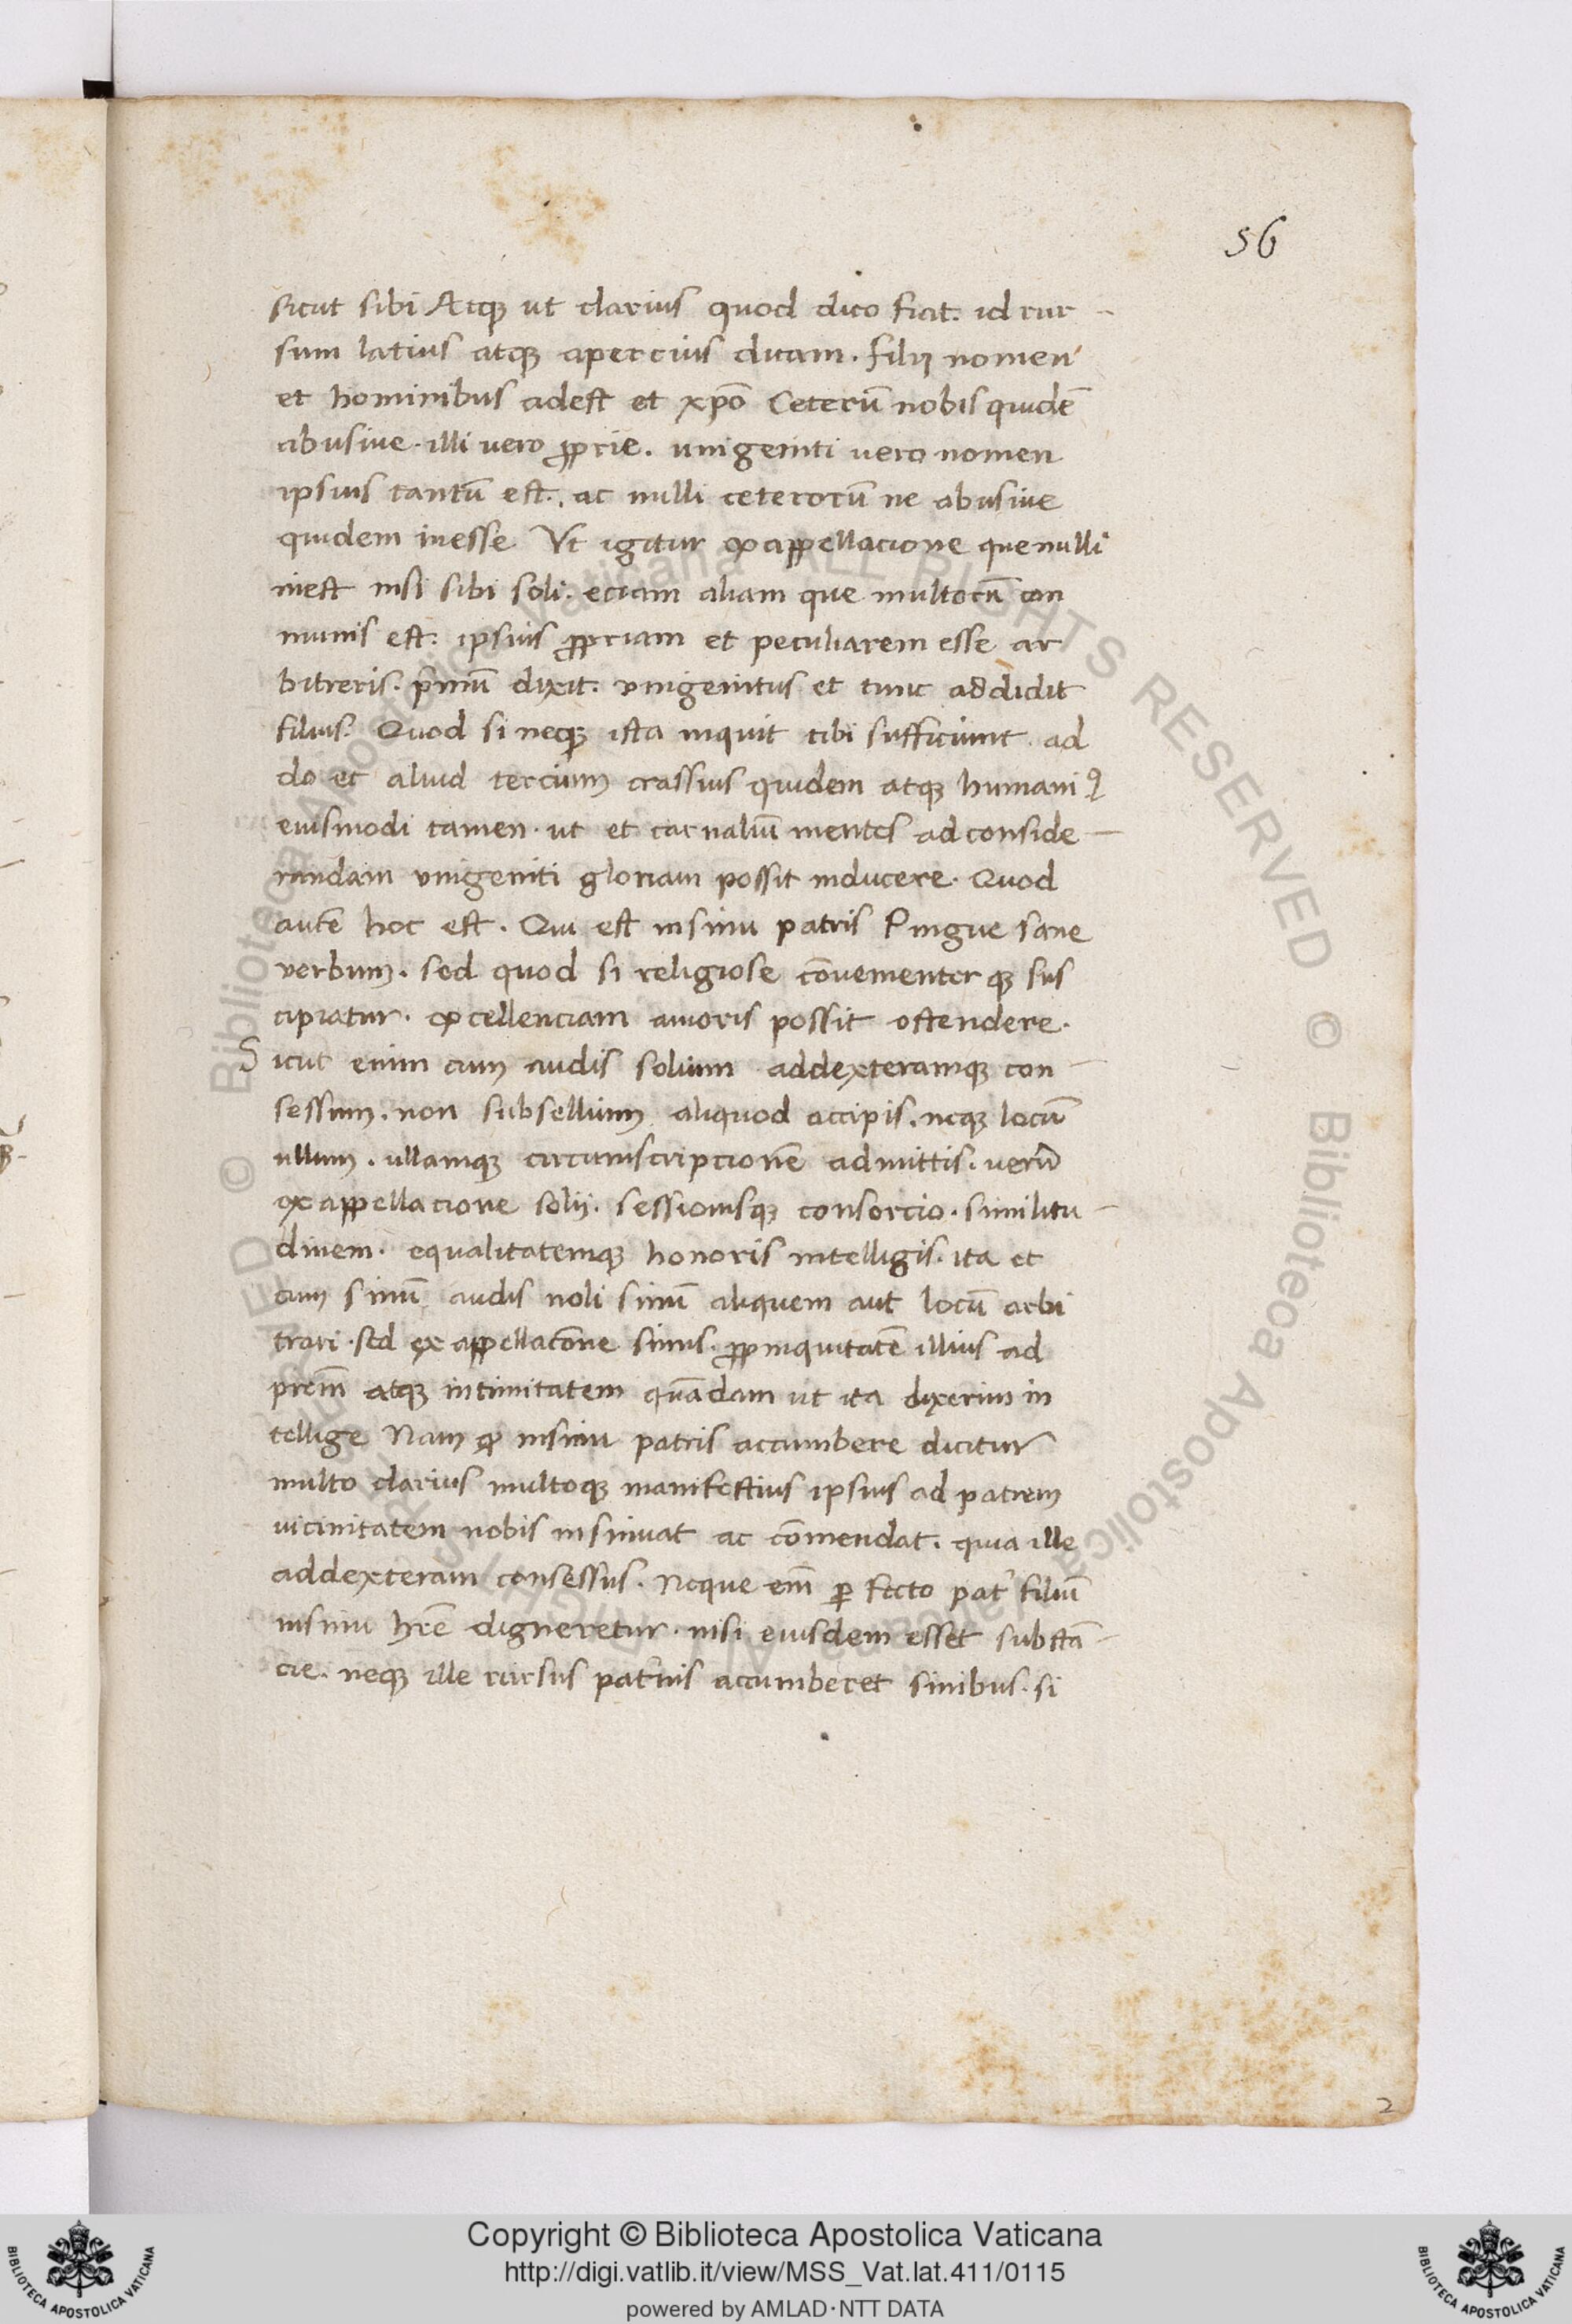 56
sicut sibi Atq3 ut clarius quod dico fiat. id rur
sum latius atq3 apercius dicam. filij nomen
et hominibus adest et xp̄o Ceterū nobis quidē
abusive. illi vero ꝓprie. unigeniti vero nomen
ipsius tantū est. ac nulli ceterorū ne abusive
quidem inesse Ut igitur ex appellacione que nulli
inest nisi sibi soli. eciam aliam que multorū con
munis est: ipsius ꝓpriam et peculiarem esse ar
bitreris. p̄mū dixit. unigenitus et tunc addidit
filius. Quod si neq3 ista inquit tibi sufficiunt ad
do et aliud tercium crassius quidem atq3 humaniꝰ
eiusmodi tamen. ut et carnaliū mentes ad conside
randam unigeniti gloriam possit inducere. Quod
autē hoc est. Qui est in sinu patris Pingue sane
verbum. sed quod si religiose cōvenienter q3 sus
cipiatur. excellenciam amoris possit ostendere.
Sicut enim cum audis solium addexteramq3 con
sessum. non subsellium aliquod accipis. neq3 locū
ullum. ullamq3 circumscripcionē admittis. verū
ex appellacione solij. sessionisq3 consorcio. similitu
dinem. equalitatemq3 honoris intelligis. ita et
cum sinū audis noli sinū aliquem aut locū arbi
trari. sed ex appellacōne sinus. ꝓpinquitatē illius ad
prēm atq3 intimitatem quādam ut ita dixerim in
tellige Nam qd̄ in sinu patris accumbere dicitur
multo clarius multoq3 manifestius ipsius ad patrem
vicinitatem nobis insinuat ac cōmendat. quia ille
addexteram consessus. Neque em̄ ꝑfecto pat' filiū
in sinu hr̄e dignaretur. nisi eiusdem esset substā
cie. neq3 ille rursus pat'nis accumberet sinibus. si
2
Copyright © Biblioteca Apostolica Vaticana
http://digi.vatlib.it/view/MSS_Vat.lat.411/0115
powered by AMLAD·NTT DATA